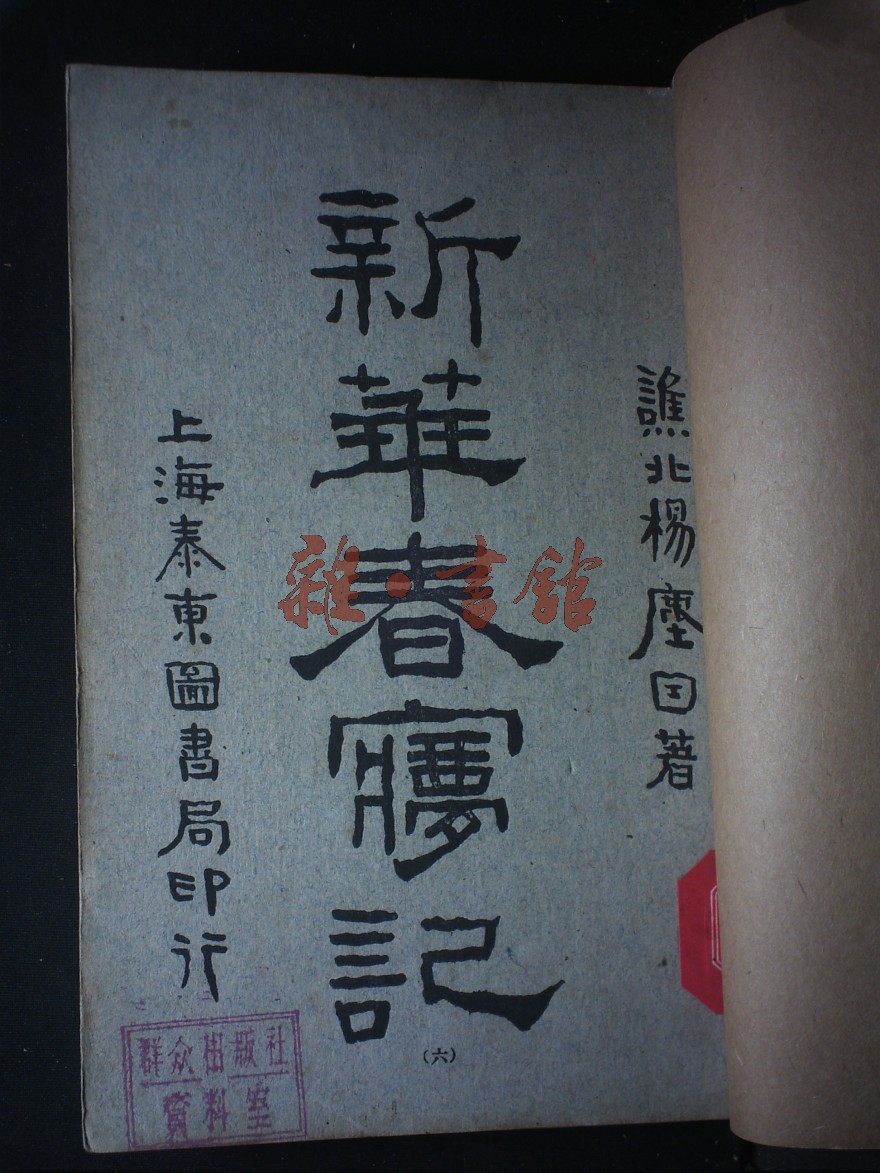 譙北楊塵因著
新華春寢記
(六)
上海泰東圖書局印行
雜·書館
群众出版社
資料室